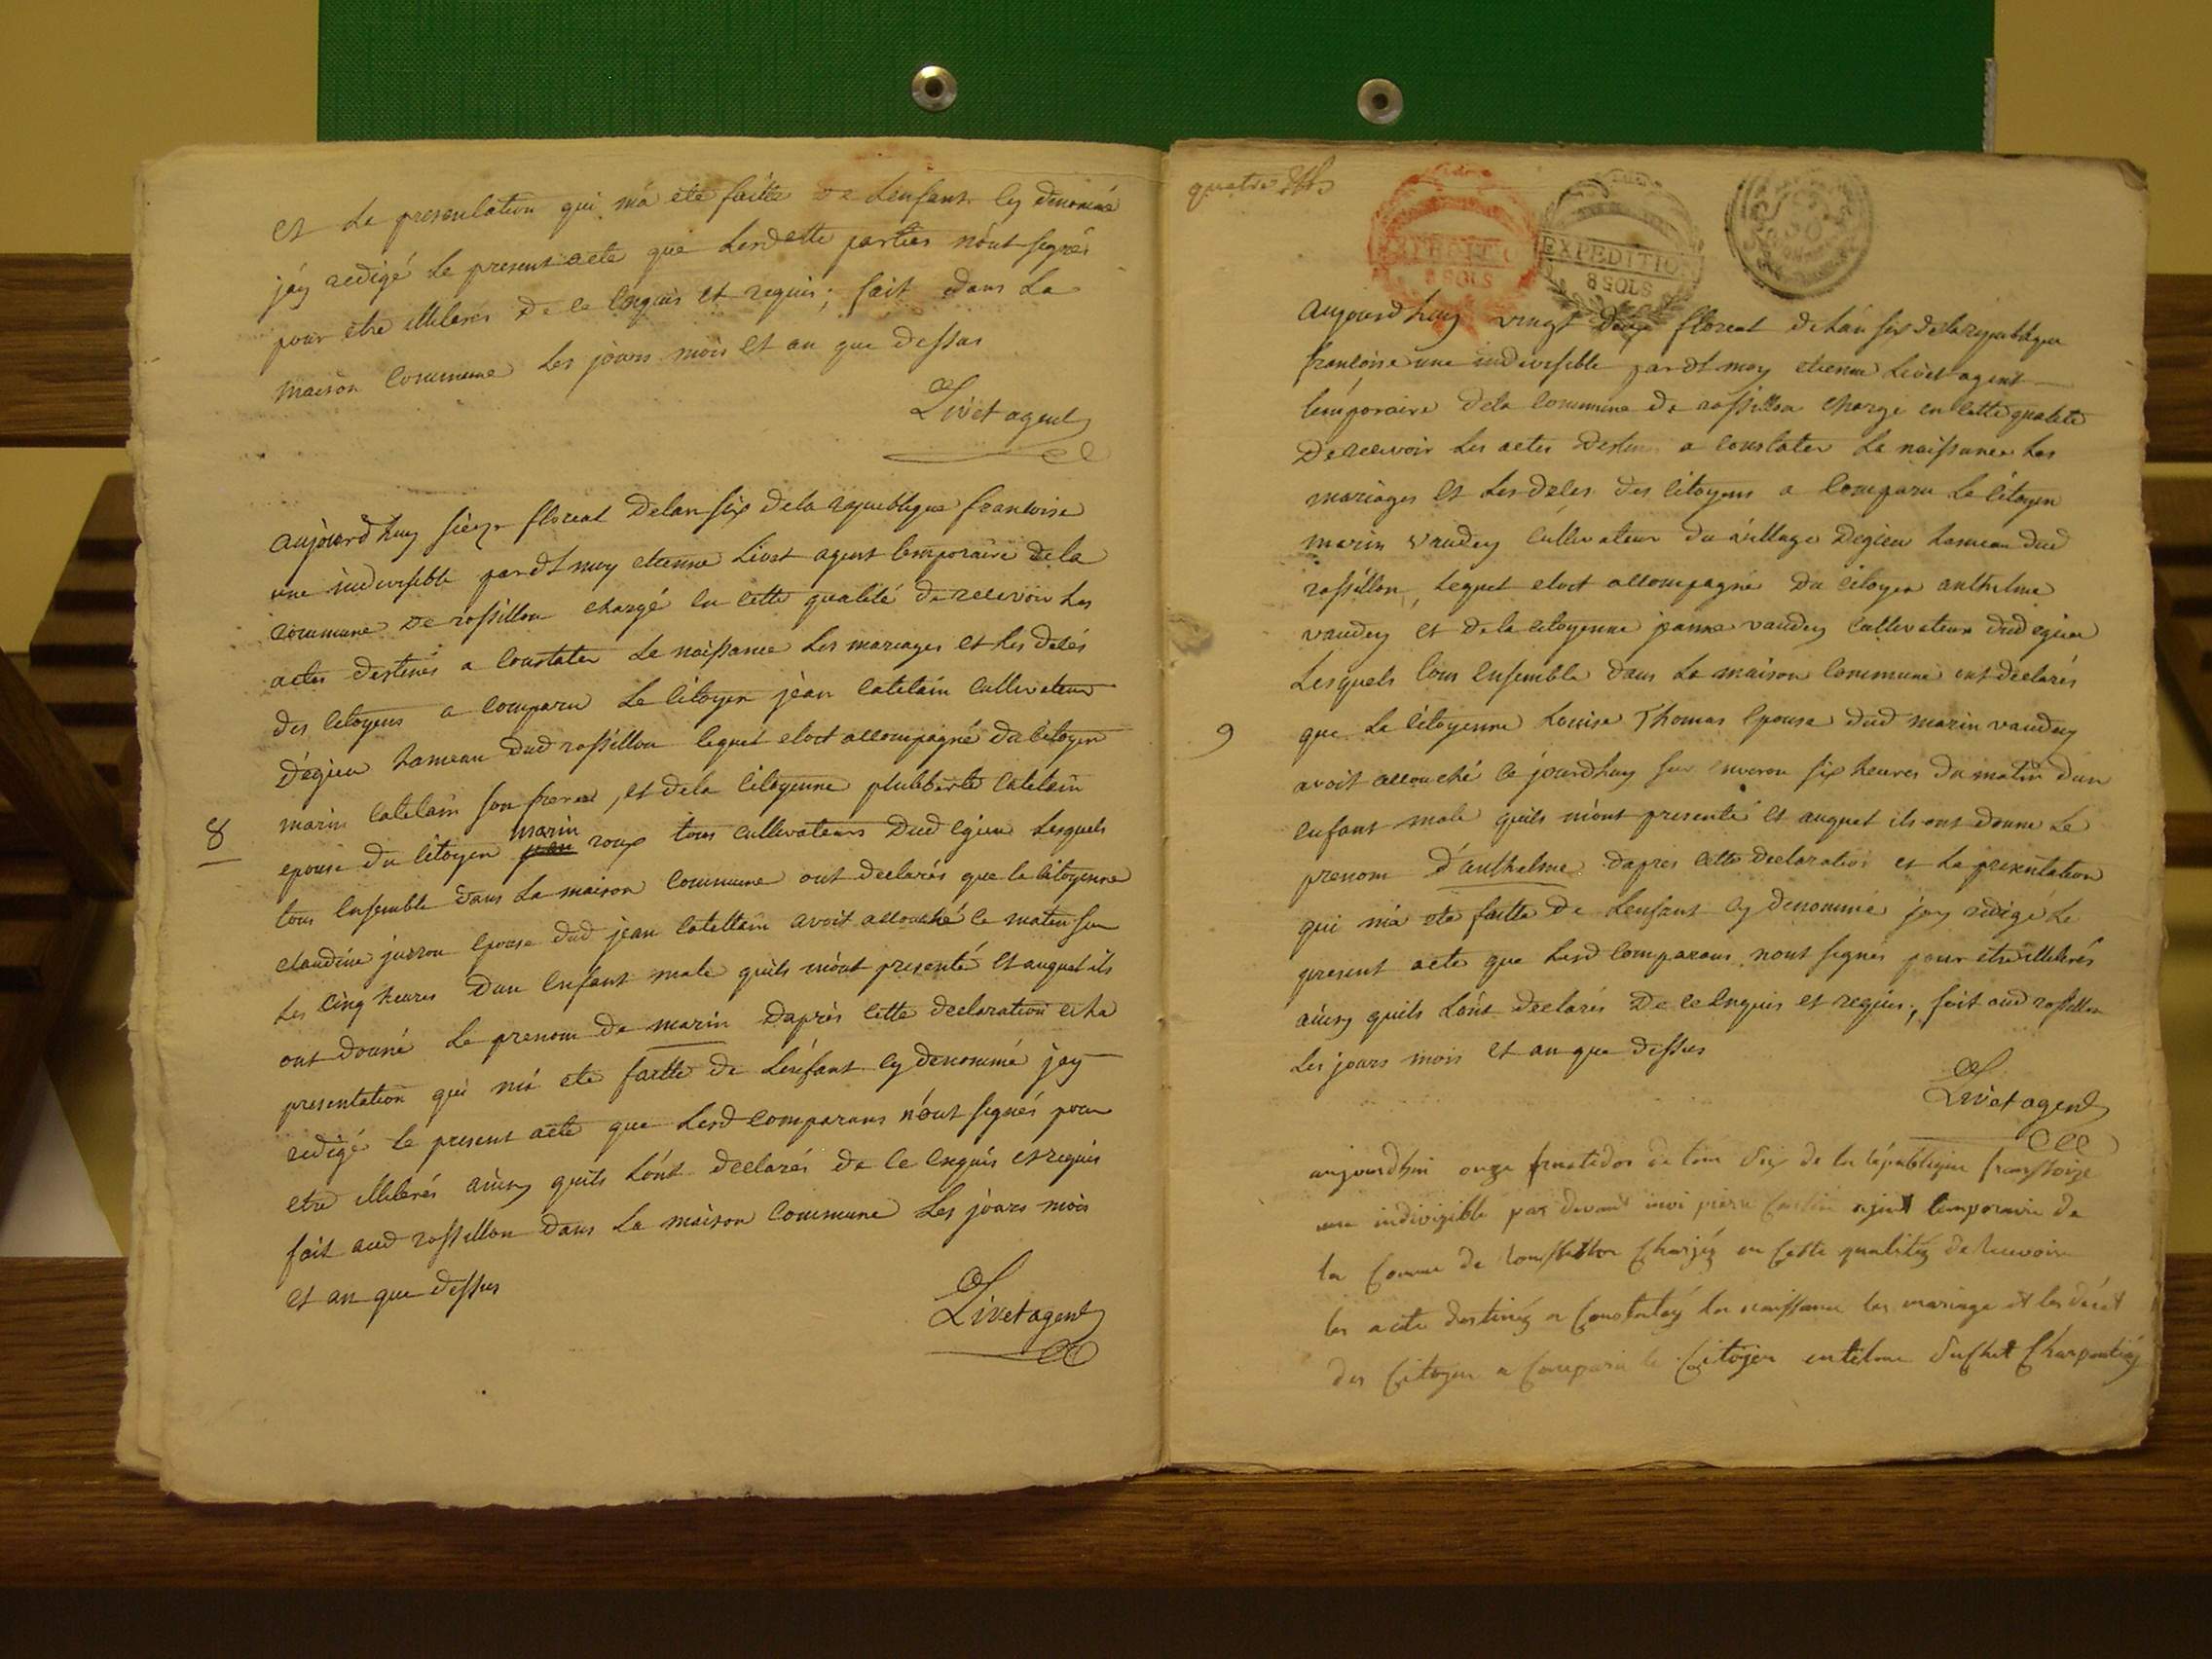 et la presentation qui m'a eté faitte de L'enfant cy denommé
j'ay redigé le present acte que lesdette parties n'ont signés
pour etre illiterés de ce enquis et requis; fait dans la
maison commune les jours mois et an que dessus
Livet agent
aujourd'huy seize floreal de l'an six de la republique francoise
une indivisible pardt moy etienne Livet agent temporaire de la
commune de rossillon chargé en cette qualité de recevoir les
actes destinés a constater la naissance les mariages et les decés
des citoyens a comparu le citoyen jean catelain cultivateur
d'egieu hameau dud rossillon lequel etoit accompagné du citoyen
marin catelain son frere, et de la citoyenne philiberte catelain
8
epouse du citoyen marin roux tous cultivateurs dud egieu lesquels
tous ensemble dans la maison commune ont declarés que la citoyenne
claudine epouse dud jean catellain avoit accouché ce matin sur
les cinq heures d'un enfant male quils m'ont presenté et auquel ils
ont donné le prenom de marin d'aprés cette declaration et la
presentation qui m'a eté faitte de L'enfant cy denommé jay
redigé le present acte que lesd comparans n'ont signés pour
etre illiterés ainsy quils l'ont declarés de ce enquis et requis
fait aud rossillon dans la maison commune les jours mois
et an que dessus
Livet agent
quatre
EXPEDITION
8 SOLS
EXPEDITION
8 SOLS
aujourd'huy vingt floreal de l'an six de la republique
francoise une indivisible pardt moy etienne Livet agent
temporaire de la commune de rossillon chargé en cette qualité
de recevoir les actes destinés a constater la naissance les
mariages et les decés des citoyens a comparu le citoyen
marin vaudey cultivateur du village d'egieu hameau dud
rossillon, lequel etoit accompagné du citoyen anthelme
vaudey et de la citoyenne vaudey cultivateurs dud egieu
lesquels tous ensemble dans la maison commune ont declarés
9
que la citoyenne Louise Thomas epouse dud marin vaudey
avoit accouché ce jourdhuy sur environ six heures du matin d'un
enfant male quils m'ont presenté et auquel ils ont donné le
prenom d'anthelme. d'apres cette declaration et la presentation
qui m'a eté faitte de L'enfant cy denommé jay redigé le
present acte que lesd comparans n'ont signés pour etre illiterés
ainsy quils l'ont declarés de ce enquis et requis; fait aud rossillon
les jours mois et an que dessus
Livet agent
aujourdhui onze frutidor de lan six de la républiqui
une indivizible par devant moi pierre ajent temporaire de
la de chargéz en cette qualitéz de recevoir
les acte destinéz a la naissance les mariage et les décét
des citoyen a comparu le citojen